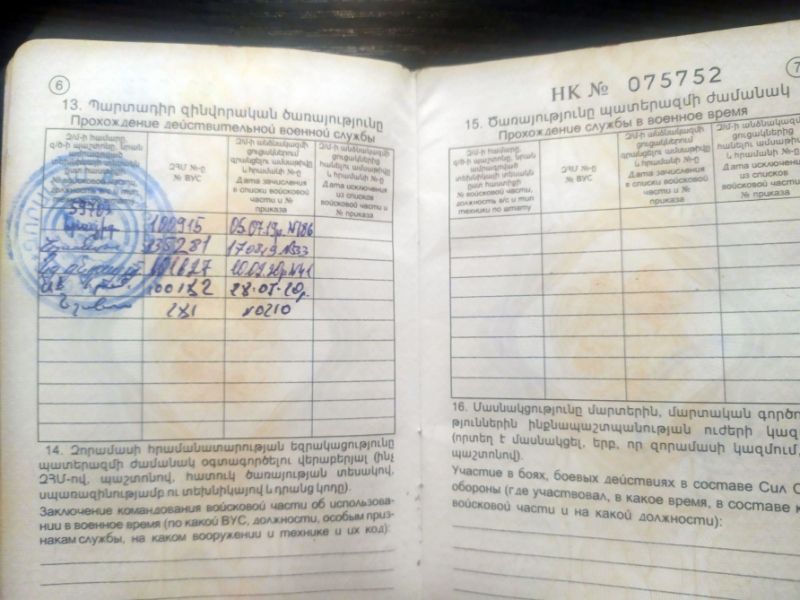 6
13. Պարտադիր զինվորական ծառայությունը
Прохождение действительной военной службы
ԶՄ-ի համարը,
ԶՀՄ №-ը
№ ВУС
ԶՄ-ի անձնակազմի
ցուցակներում
գրանցելու ամսաթիվը
և հրամանի №-ը
Дата зачисления
в списки войсковой
части и №
приказа
ԶՄ-ի անձնակազմի
ցուցակներից
հանելու ամսաթիվը
և հրամանի №-ը
Дата исключения
из списков
войсковой части и
№ приказа
59703
100915 05.07.19թ. №186
35281 17.08.19 №333
10.09.20թ №41
28.07.20թ.
№0210
14. Զորամասի հրամանատարության եզրակացությունը
պատերազմի ժամանակ օգտագործելու վերաբերյալ (ինչ
ԶՀՄ-ով, պաշտոնով, հատուկ ծառայության տեսակով,
սպառազինությամբ ու տեխնիկայով և դրանց կոդը).
Заключение командования войсковой части об использова-
нии в военное время (по какой ВУС, должности, особым приз-
накам службы, на каком вооружении и технике и их код):
7
НК № 075752
15. Ծառայությունը պատերազմի ժամանակ
Прохождение службы в военное время
ԶՄ-ի համարը,
զ/ծ-ի պաշտոնը, նրան
ամրագրված
տեխնիկայի տեսակն
ըստ հաստիքի
№ войсковой части,
должность в/с и тип
техники по штату
ԶՀՄ №-ը
№ ВУС
ԶՄ-ի անձնակազմի
ցուցակներում
գրանցելու ամսաթիվը
և հրամանի №-ը
Дата зачисления
в списки войсковой
части и №
приказа
ԶՄ-ի անձնակազմի
ցուցակներից
հանելու ամսաթիվը
և հրամանի №-ը
Дата исключения
из списков
войсковой части и
№ приказа
16. Մասնակցությունը մարտերին, մարտական գործո
թյուններին ինքնապաշտպանության ուժերի կազ
(որտեղ է մասնակցել, երբ, որ զորամասի կազմում,
պաշտոնով).
Участие в боях, боевых действиях в составе Сил С
обороны (где участвовал, в какое время, в составе к
войсковой части и на какой должности):